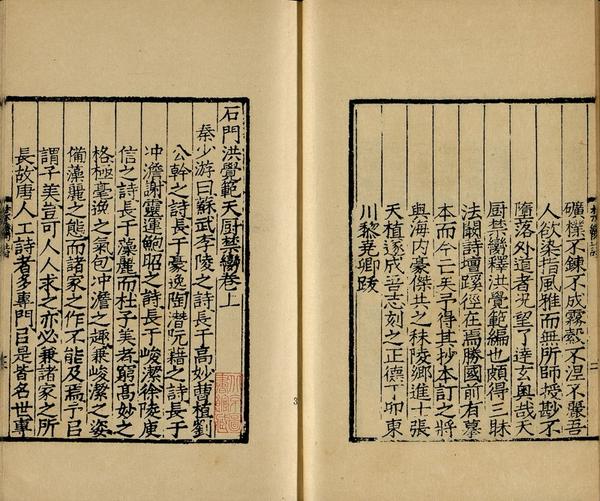 礦樸不鍊不成霧縠不湼不嚴吾
人欲染指風雅而無所師授尠不
墮落外道者况望了達玄奥哉天
厨禁臠釋洪覺範編也頗得三昧
法闢詩壇蹊徑在焉勝國前有摹
本而今亡矣予得其抄本訂之將
與海内豪傑共之秣陵鄉進士張
天植遂成吾志刻之正德丁卯東
川黎堯卿跋
石門洪覺範天厨禁臠卷上
秦少游曰蘇武李陵之詩長于高妙曹植劉
公幹之詩長于豪逸陶潛阮籍之詩長于
冲澹謝靈運鮑照之詩長于峻潔徐陵庾
信之詩長于藻麗而杜子美者窮高妙之
格極豪逸之氣包冲澹之趣兼峻潔之姿
備藻麗之態而諸家之作不能及焉予㠯
謂子美豈可人人求之亦必兼諸家之所
長故唐人工詩者多專門㠯是皆名世專